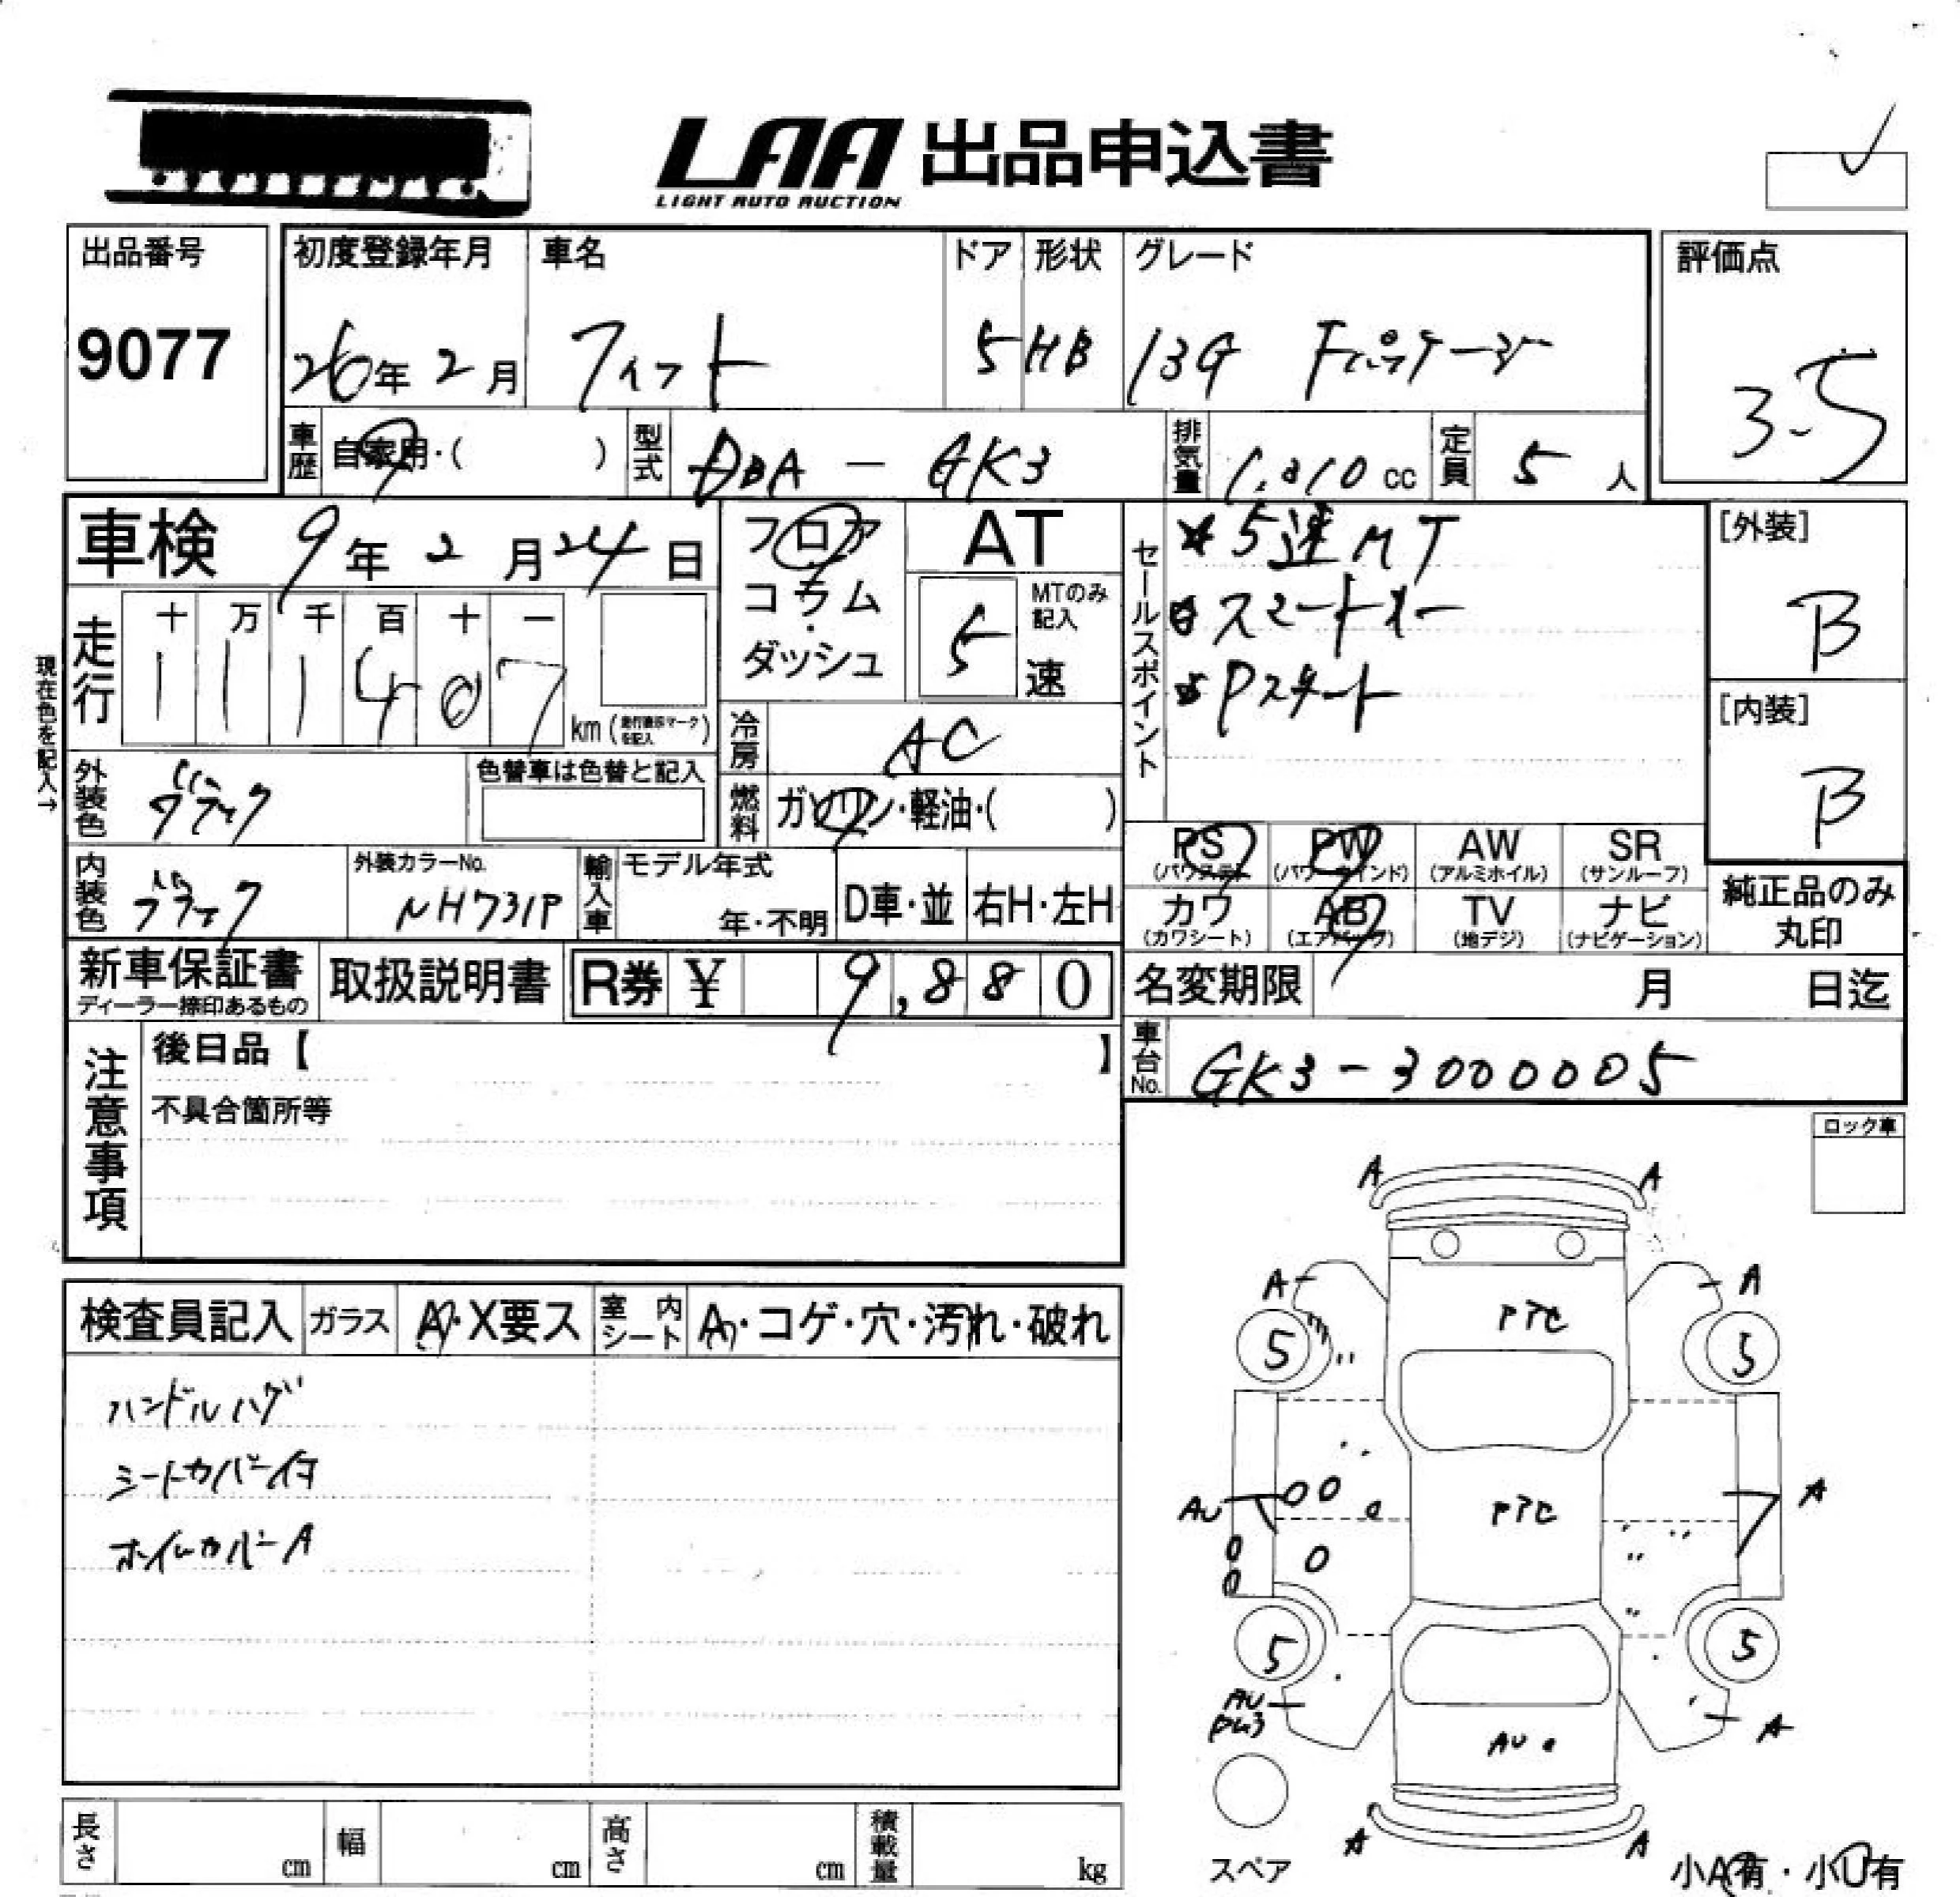 LAA 出品申込書
LIGHT AUTO AUCTION
出品番号
9077
初度登録年月
26年 2月
車名
フィット
ドア
5
形状
HB
グレード
13G Fパッケージ
評価点
3.5
車歴
自家用・( )
型式
DBA - GK3
排気量
1,310 cc
定員
5 人
車検 9年 2月 24日
フロア
コラム
・
ダッシュ
AT
MTのみ
記入
5
速
セールスポイント
5速MT
スマートキー
Pスタート
[外装]
B
[内装]
B
現在色を記入→
走行
十 万 千 百 十 一
1 1 1 4 0 7
km (走行表示マークを記入)
冷房
AC
外装色
ブラック
色替車は色替と記入
燃料
ガソリン・軽油・( )
PS AW SR
(パワステ) (アルミホイル) (サンルーフ)
PW
(パワーウインド)
内装色
ブラック
外装カラーNo.
NH731P
輸入車
モデル年式
年・不明
D車・並
右H・左H
カワ AB TV ナビ
(カワシート) (エアバッグ) (地デジ) (ナビゲーション)
純正品のみ
丸印
新車保証書
ディーラー捺印あるもの
取扱説明書
R券 ¥ 9,880
名変期限 月 日迄
注意事項
後日品【 】
不具合箇所等
車台No.
GK3-3000005
ロック車
検査員記入
ガラス
A・X要ス
室内シート
A・コゲ・穴・汚れ・破れ
ハンドルハゲ
シートカバー付
ホイルカバーA
A A
A A
PTC
5 5
AU PTC A
5 5
AU
AU A
A A
スペア
小A有・小U有
長さ cm
幅 cm
高さ cm
積載量 kg